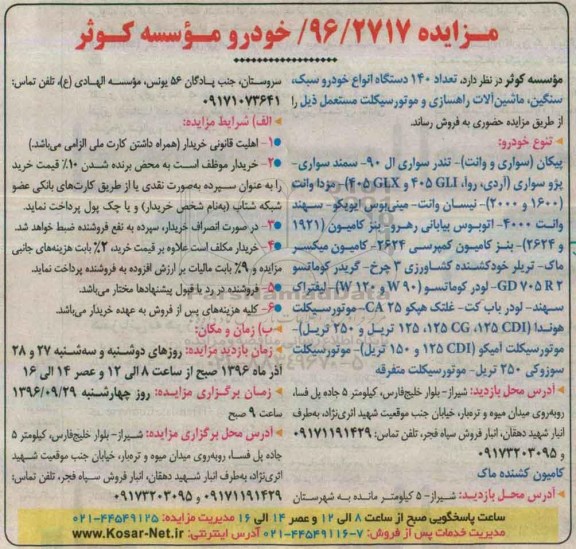 مزایده ۹۶/۲۷۱۷/ خودرو مؤسسه کوثر
مؤسسه کوثر در نظر دارد، تعداد ۱۴۰ دستگاه انواع خودرو سبک،
سنگین، ماشین‌آلات راهسازی و موتورسیکلت مستعمل ذیل را
از طریق مزایده حضوری به فروش رساند.
تنوع خودرو:
پیکان (سواری و وانت)- تندر سواری ال ۹۰- سمند سواری-
پژو سواری (آردی، روآ، ۴۰۵ GLI و ۴۰۵ GLX)- مزدا وانت
(۱۶۰۰ و ۲۰۰۰)- نیسان وانت- مینی‌بوس ایویکو- سهند
وانت ۴۰۰۰- اتوبوس بیابانی رهرو- بنز کامیون (۱۹۲۱
و ۲۶۲۴)- بنز کامیون کمپرسی ۲۶۲۴- کامیون میکسر
ماک- تریلر خودکشنده کشاورزی ۳ چرخ- گریدر کوماتسو
GD ۷۰۵ R ۲- لودر کوماتسو (W ۹۰ و W ۱۲۰)- لیفتراک
سهند- لودر باب کت- غلتک هپکو CA ۲۵- موتورسیکلت
هوندا (۱۲۵ CDI، ۱۲۵ CG، ۱۲۵ تریل و ۲۵۰ تریل)-
موتورسیکلت آمیکو (۱۲۵ CDI و ۱۵۰ تریل)- موتورسیکلت
سوزوکی ۲۵۰ تریل- موتورسیکلت متفرقه
آدرس محل بازدید: شیراز- بلوار خلیج‌فارس، کیلومتر ۵ جاده پل فسا،
روبه‌روی میدان میوه و تره‌بار، خیابان جنب موقعیت شهید اثری‌نژاد، به‌طرف
انبار شهید دهقان، انبار فروش سپاه فجر، تلفن تماس: ۰۹۱۷۱۱۹۱۴۲۹
و ۰۹۱۷۳۲۰۳۰۹۵
کامیون کشنده ماک
آدرس محل بازدید: شیراز- ۵ کیلومتر مانده به شهرستان
سروستان، جنب پادگان ۵۶ یونس، مؤسسه الهادی (ع)، تلفن تماس:
۰۹۱۷۱۰۷۳۶۴۱
الف) شرایط مزایده:
۱- اهلیت قانونی خریدار (همراه داشتن کارت ملی الزامی می‌باشد.)
۲- خریدار موظف است به محض برنده شدن ۱۰٪ قیمت خرید
را به عنوان سپرده به‌صورت نقدی یا از طریق کارت‌های بانکی عضو
شبکه شتاب (به‌نام شخص خریدار) و یا چک پول پرداخت نماید.
۳- در صورت انصراف خریدار، سپرده به نفع فروشنده ضبط خواهد شد.
۴- خریدار مکلف است علاوه بر قیمت خرید، ۲٪ بابت هزینه‌های جانبی
مزایده و ۹٪ بابت مالیات بر ارزش افزوده به فروشنده پرداخت نماید.
۵- فروشنده در رد یا قبول پیشنهادها مختار می‌باشد.
۶- کلیه هزینه‌های پس از فروش به عهده خریدار می‌باشد.
ب) زمان و مکان:
زمان بازدید مزایده: روزهای دوشنبه و سه‌شنبه ۲۷ و ۲۸
آذر ماه ۱۳۹۶ صبح از ساعت ۸ الی ۱۲ و عصر ۱۴ الی ۱۶
زمان برگزاری مزایده: روز چهارشنبه ۱۳۹۶/۰۹/۲۹
ساعت ۹ صبح
آدرس محل برگزاری مزایده: شیراز- بلوار خلیج‌فارس، کیلومتر ۵
جاده پل فسا، روبه‌روی میدان میوه و تره‌بار، خیابان جنب موقعیت شهید
اثری‌نژاد، به‌طرف انبار شهید دهقان، انبار فروش سپاه فجر، تلفن تماس:
۰۹۱۷۱۱۹۱۴۲۹ و ۰۹۱۷۳۲۰۳۰۹۵
ساعت پاسخگویی صبح از ساعت ۸ الی ۱۲ و عصر ۱۴ الی ۱۶ مدیریت مزایده: ۴۴۵۴۹۱۲۵-۰۲۱
مدیریت خدمات پس از فروش: ۷-۴۴۵۴۹۱۱۶-۰۲۱ آدرس اینترنتی: www.Kosar-Net.ir